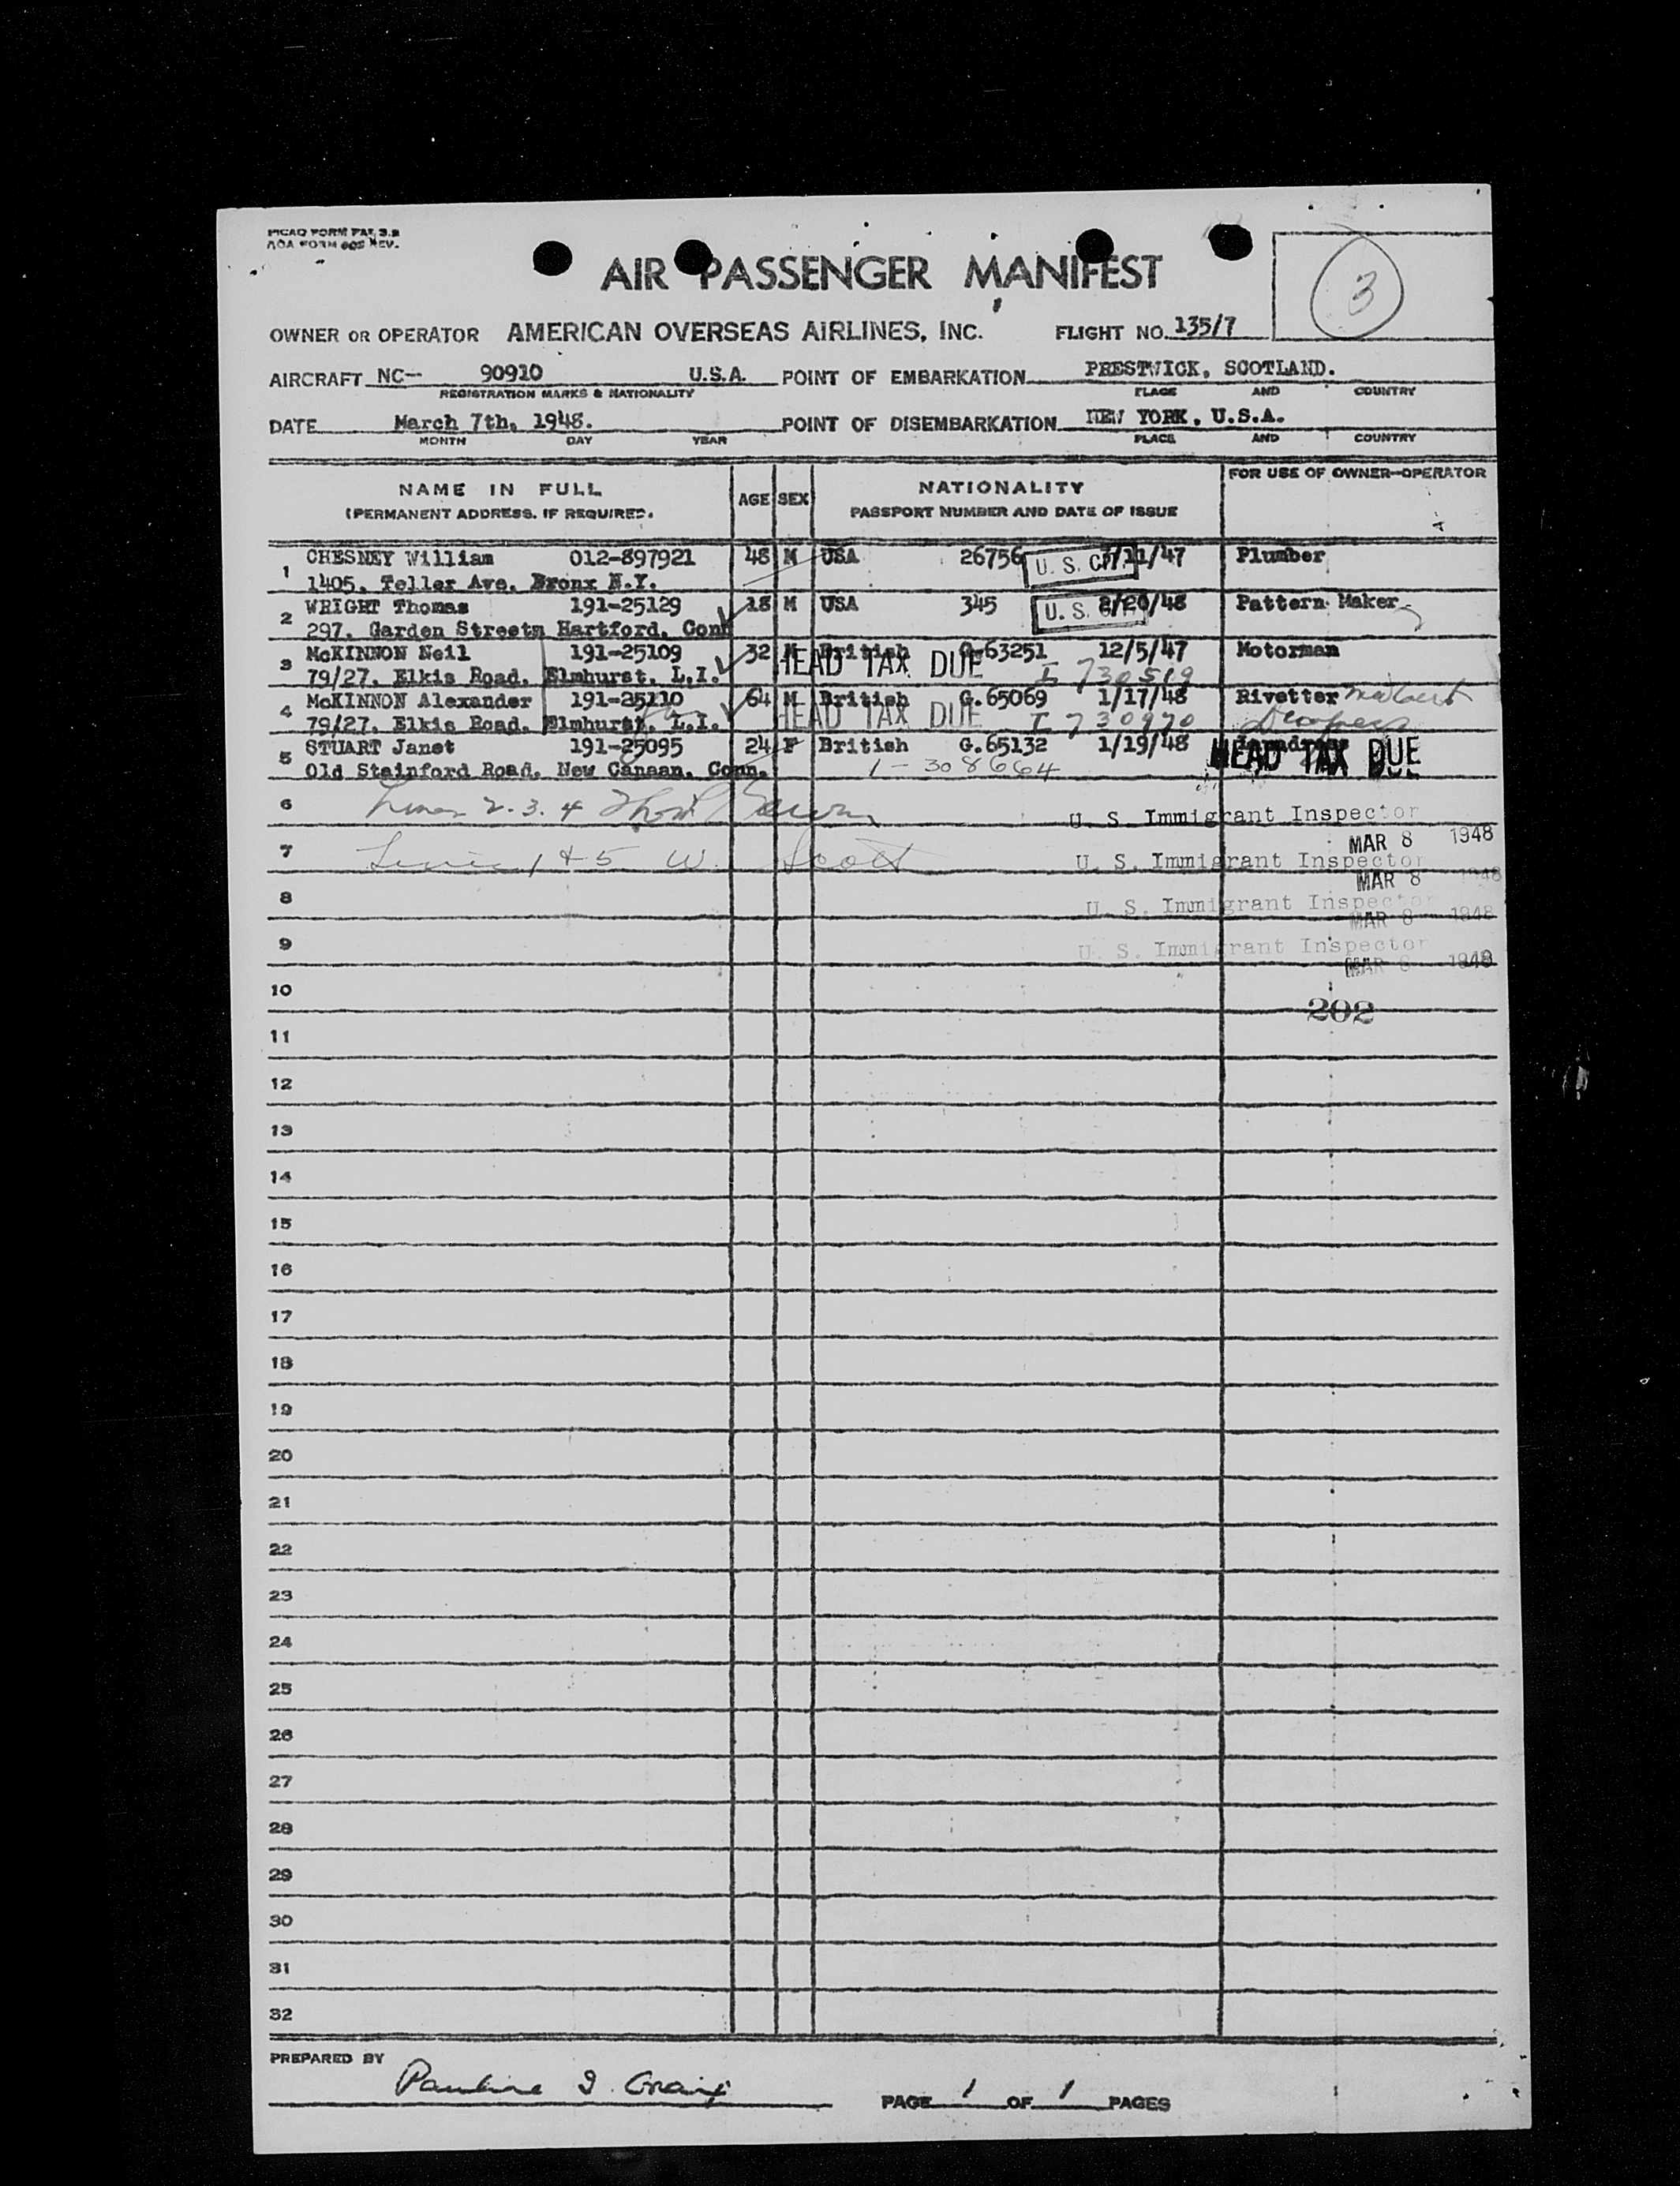 PICAO FORM PAX 3.2
AOA FORM 605 REV.
3
AIR PASSENGER MANIFEST
OWNER OR OPERATOR AMERICAN OVERSEAS AIRLINES, INC. FLIGHT NO. 135/7
AIRCRAFT NC— 90910 U.S.A. POINT OF EMBARKATION PRESTWICK, SCOTLAND.
REGISTRATION MARKS & NATIONALITY PLACE AND COUNTRY
DATE March 7th, 1948. POINT OF DISEMBARKATION NEW YORK, U.S.A.
MONTH DAY YEAR PLACE AND COUNTRY
NAME IN FULL AGE SEX NATIONALITY FOR USE OF OWNER—OPERATOR
(PERMANENT ADDRESS. IF REQUIRED. PASSPORT NUMBER AND DATE OF ISSUE
1 CHESNEY William 012-897921 48 M USA 26756 U. S. /11/47 Plumber
1405, Teller Ave. Bronx N.Y.
2 WRIGHT Thomas 191-25129 18 M USA 345 U. S. 2/20/48 Pattern Maker
297, Garden Streetm Hartford, Conn
3 McKINNON Neil 191-25109 32 M British G.63251 12/5/47 Motorman
79/27, Elkis Road, Elmhurst, L.I. HEAD TAX DUE I 730519
4 McKINNON Alexander 191-25110 64 M British G.65069 1/17/48 Rivetter
79/27, Elkis Road, Elmhurst, L.I. HEAD TAX DUE I 730970
5 STUART Janet 191-25095 24 F British G.65132 1/19/48 HEAD TAX DUE
Old Stainford Road, New Canaan, Conn. 1-308664
6 Lines 2.3.4 U. S. Immigrant Inspector
MAR 8 1948
7 Lines 1 & 5 W. Scott U. S. Immigrant Inspector
MAR 8 1948
8 U. S. Immigrant Inspector
MAR 8 1948
9 U. S. Immigrant Inspector
MAR 8 1948
10
202
11
12
13
14
15
16
17
18
19
20
21
22
23
24
25
26
27
28
29
30
31
32
PREPARED BY Pauline I. Craig
PAGE 1 OF 1 PAGES